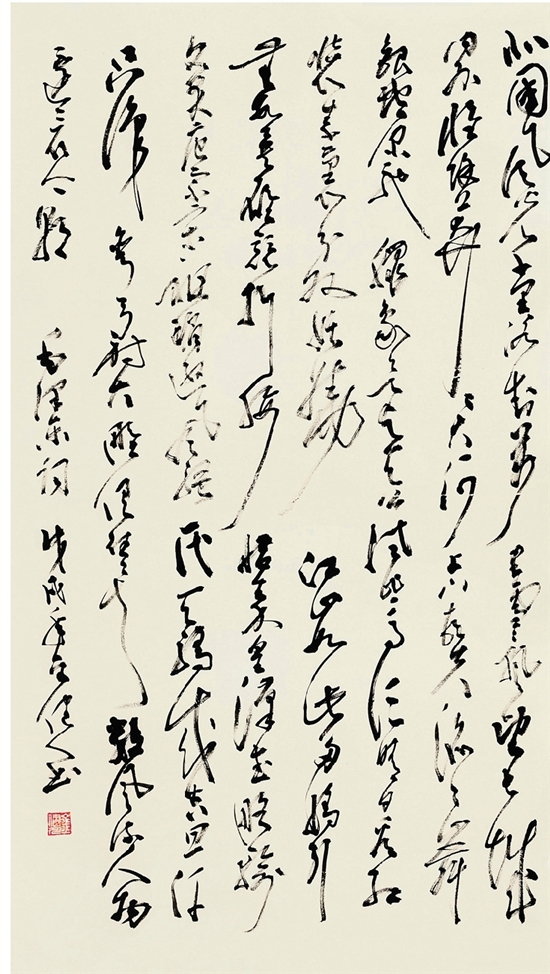 北国风光千里冰封万里雪飘望长城
内外惟余莽莽大河上下顿失滔滔山舞
银蛇原驰蜡象欲与天公试比高须晴日看红
装素裹分外妖娆江山如此多娇引
无数英雄竞折腰惜秦皇汉武略输
文采唐宗宋祖稍逊风骚一代天骄成吉思汗
只识弯弓射大雕俱往矣数风流人物
还看今朝 毛泽东词 戊戌年 书